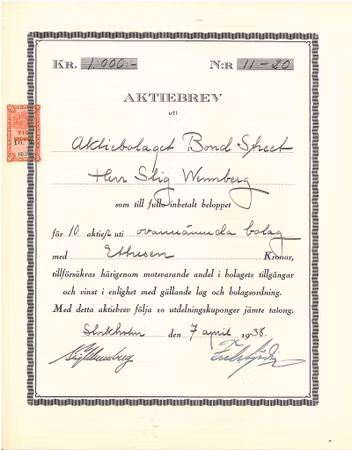 KR. 1.000:- N:R 11-20
AKTIEBREV
uti
Aktiebolaget Bond Street
Herr Stig Wennberg
som till fullo inbetalt beloppet
för 10 aktier uti ovannämnda bolag
med Ettusen Kronor,
tillförsäkras härigenom motsvarande andel i bolagets tillgångar
och vinst i enlighet med gällande lag och bolagsordning.
Med detta aktiebrev följa 10 utdelningskuponger jämte talong.
Stockholm den 7 april 1938.
Stig Wennberg